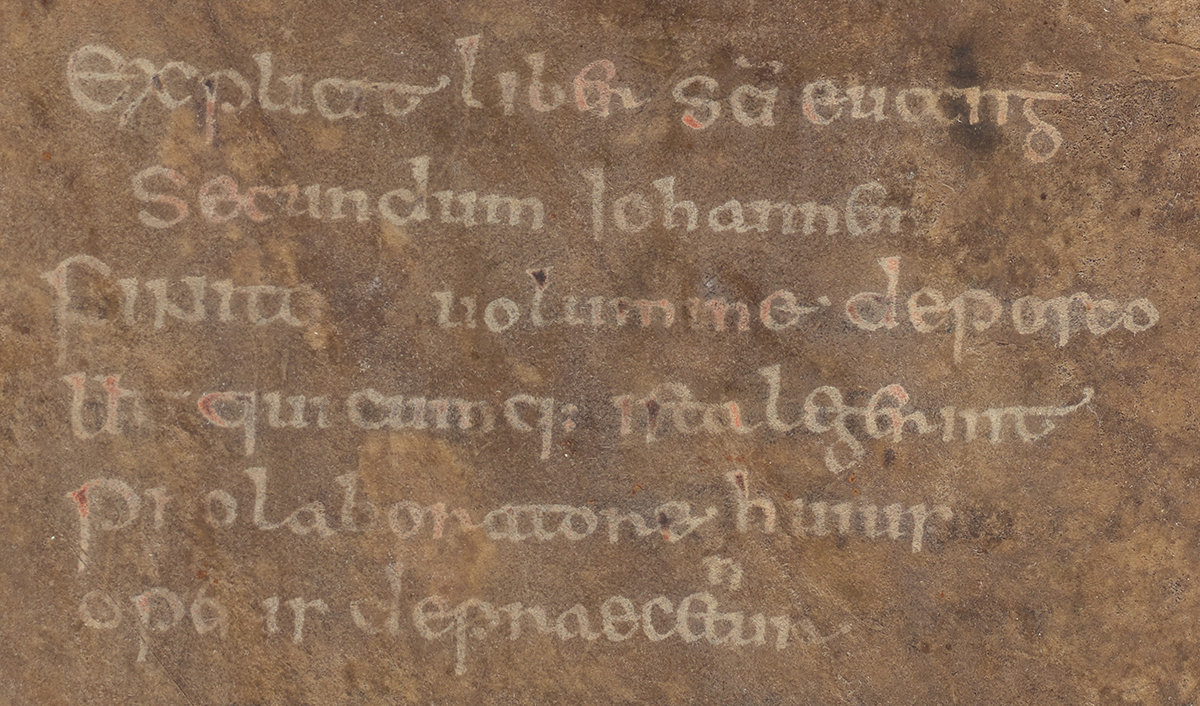 explicat liber sc̄i euang̅
secundum Iohannen
finita uolumine deposco
Ut quicumq; ista legerint
Pro laboratore huius
operis depraecentur